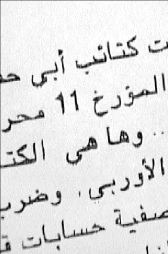 ت كتائب أبي
المؤرخ 11 محر
.. وها هي الكتـ
الأوربي. وضرب
صفية حسابات